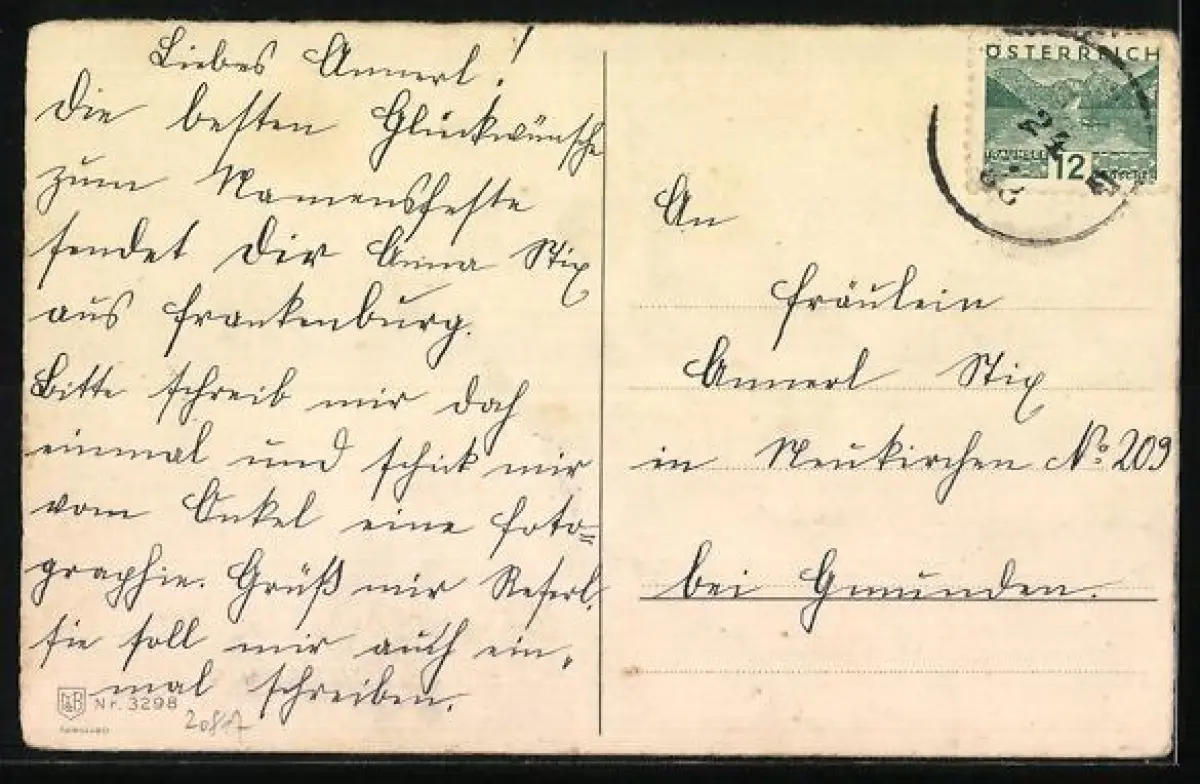 Liebes Annerl!
Die besten Glückwünsche
zum Namensfeste
sendet Dir Anna Stix
aus Frankenburg.
Bitte schreib mir doch
einmal und schick mir
vom Onkel eine Foto=
graphie. Grüß mir Reserl,
sie soll mir auch ein-
mal schreiben.
Nr. 3298
20817
ÖSTERREICH
12
An
Fräulein
Annerl Stix
in Neukirchen No. 209
bei Gmunden.